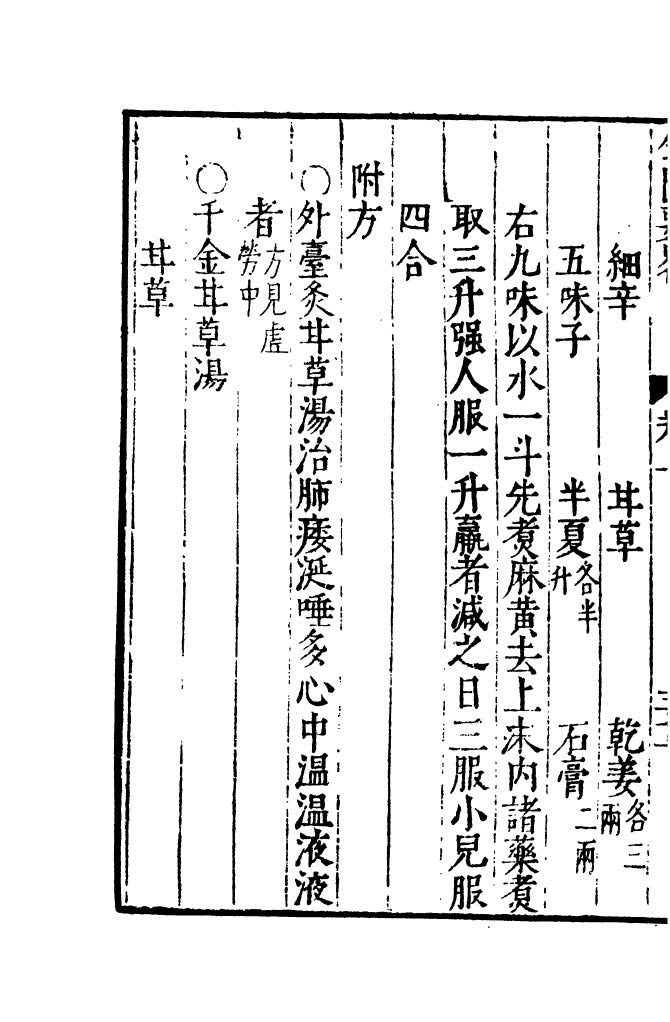 細辛　甘草　乾姜各三兩
五味子　半夏各半升　石膏二兩
右九味以水一斗先煑麻黄去上沫内諸藥煑
取三升强人服一升羸者減之日三服小兒服
四合
附方
〇外臺炙甘草湯治肺痿涎唾多心中温温液液
者方見虚勞中
〇千金甘草湯
甘草